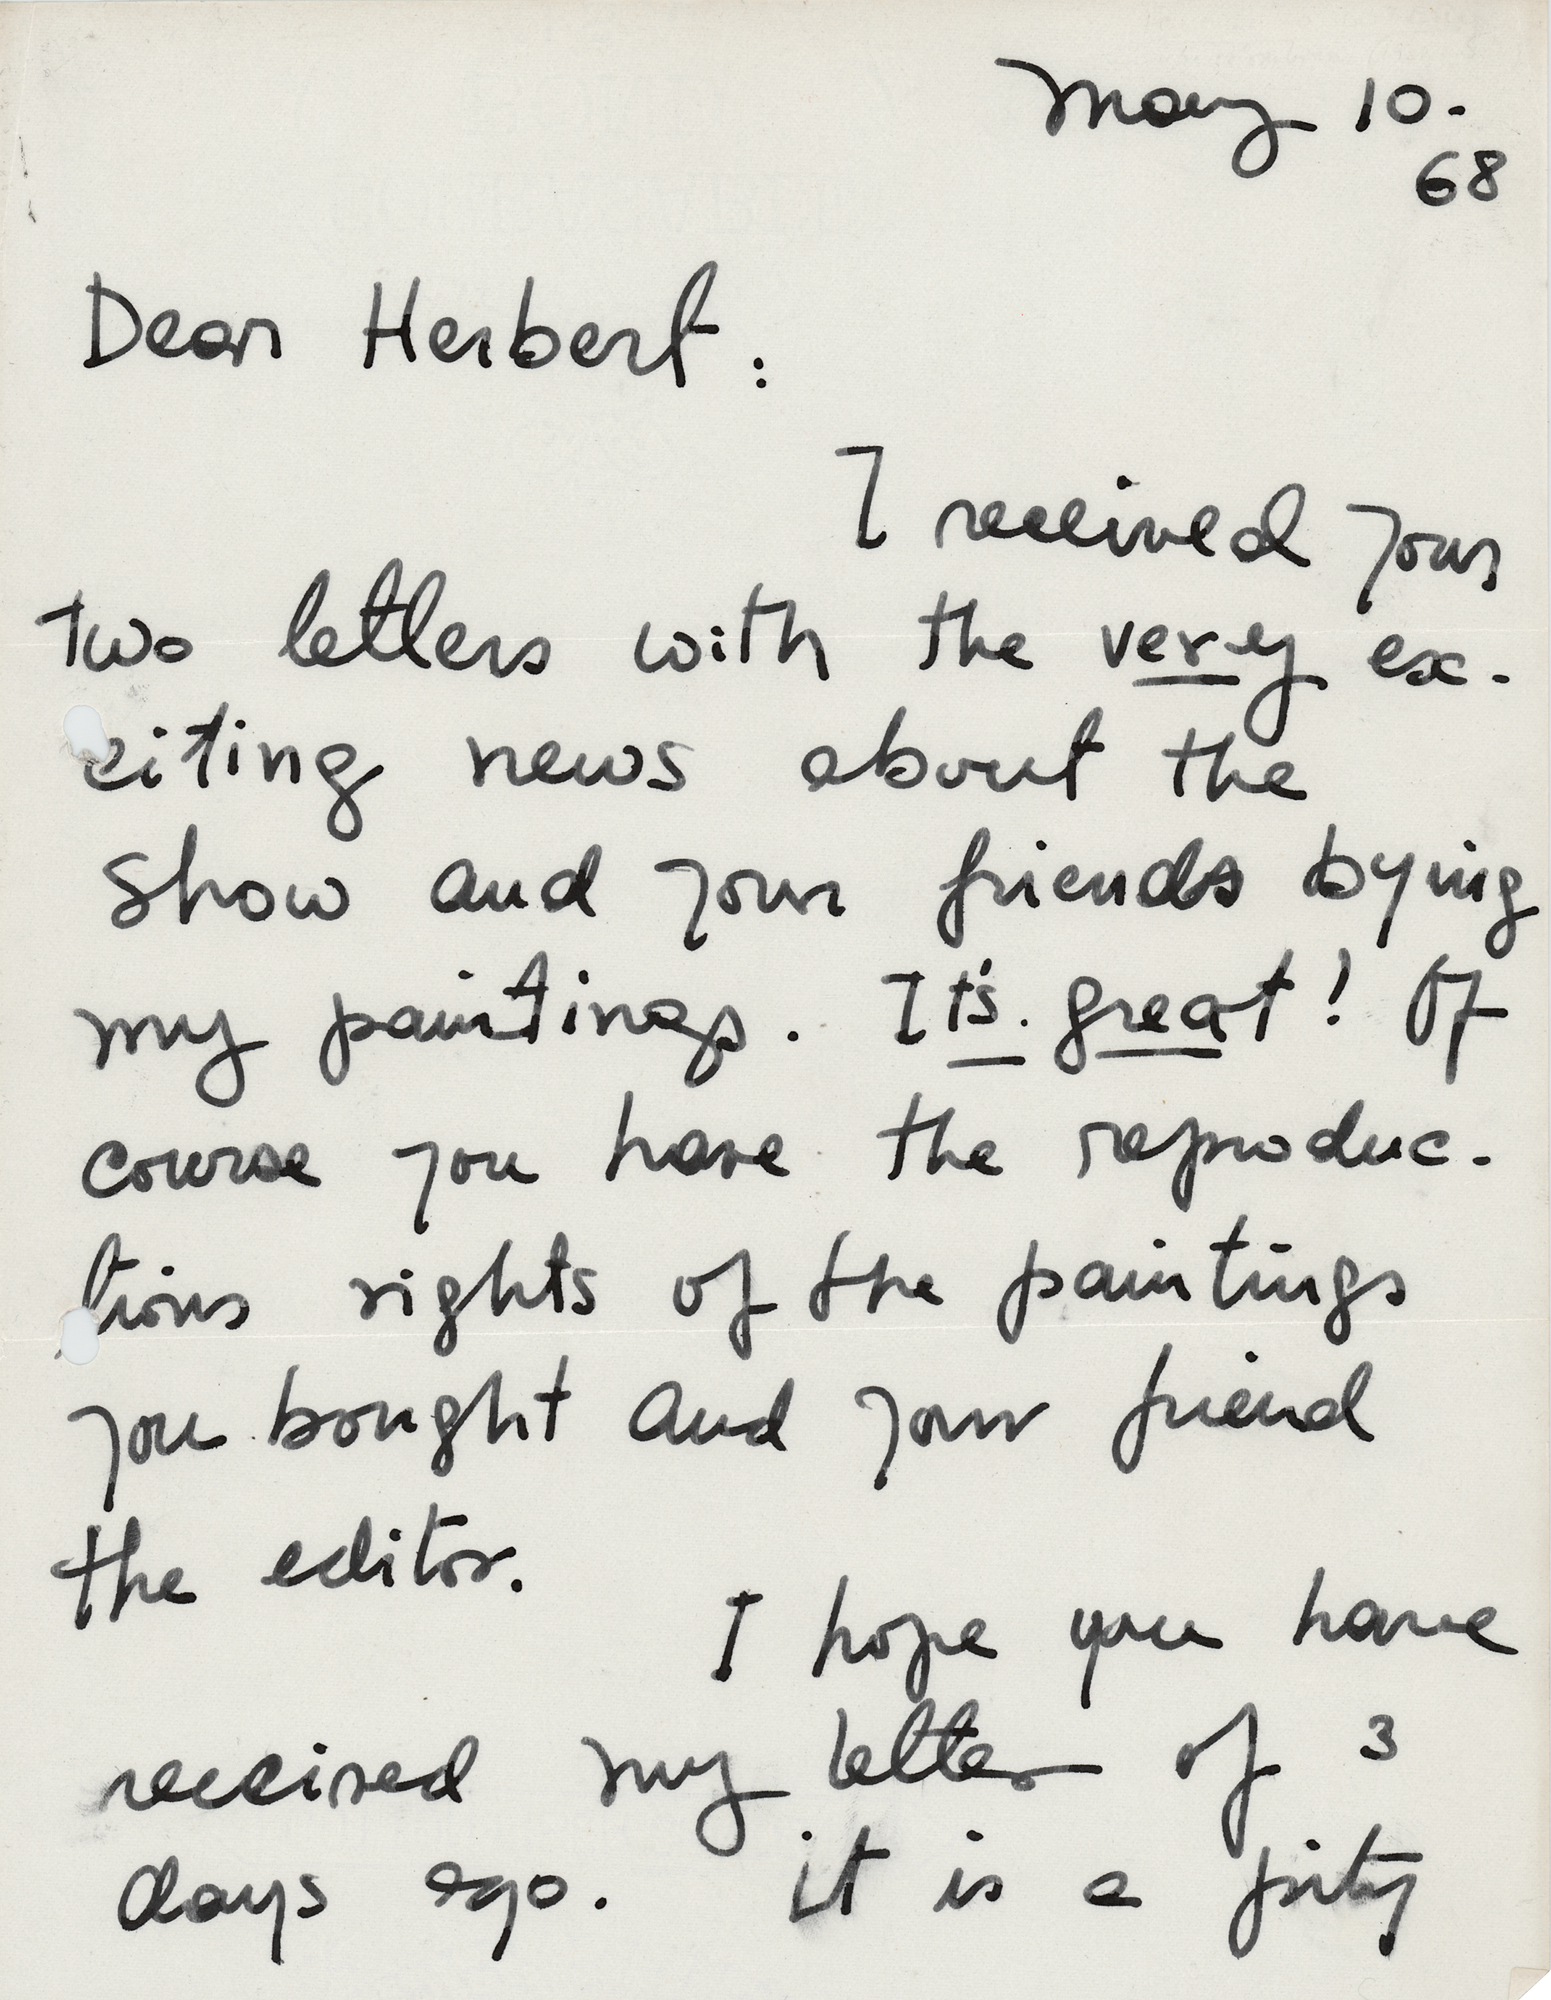 May 10.
68
Dear Herbert:
I received your
two letters with the very ex-
citing news about the
show and your friends bying
my paintings. It's. great! Of
course you have the reproduc-
tions rights of the paintings
you bought and your friend
the editor.
I hope you have
received my letter of 3
days ago. it is a pity